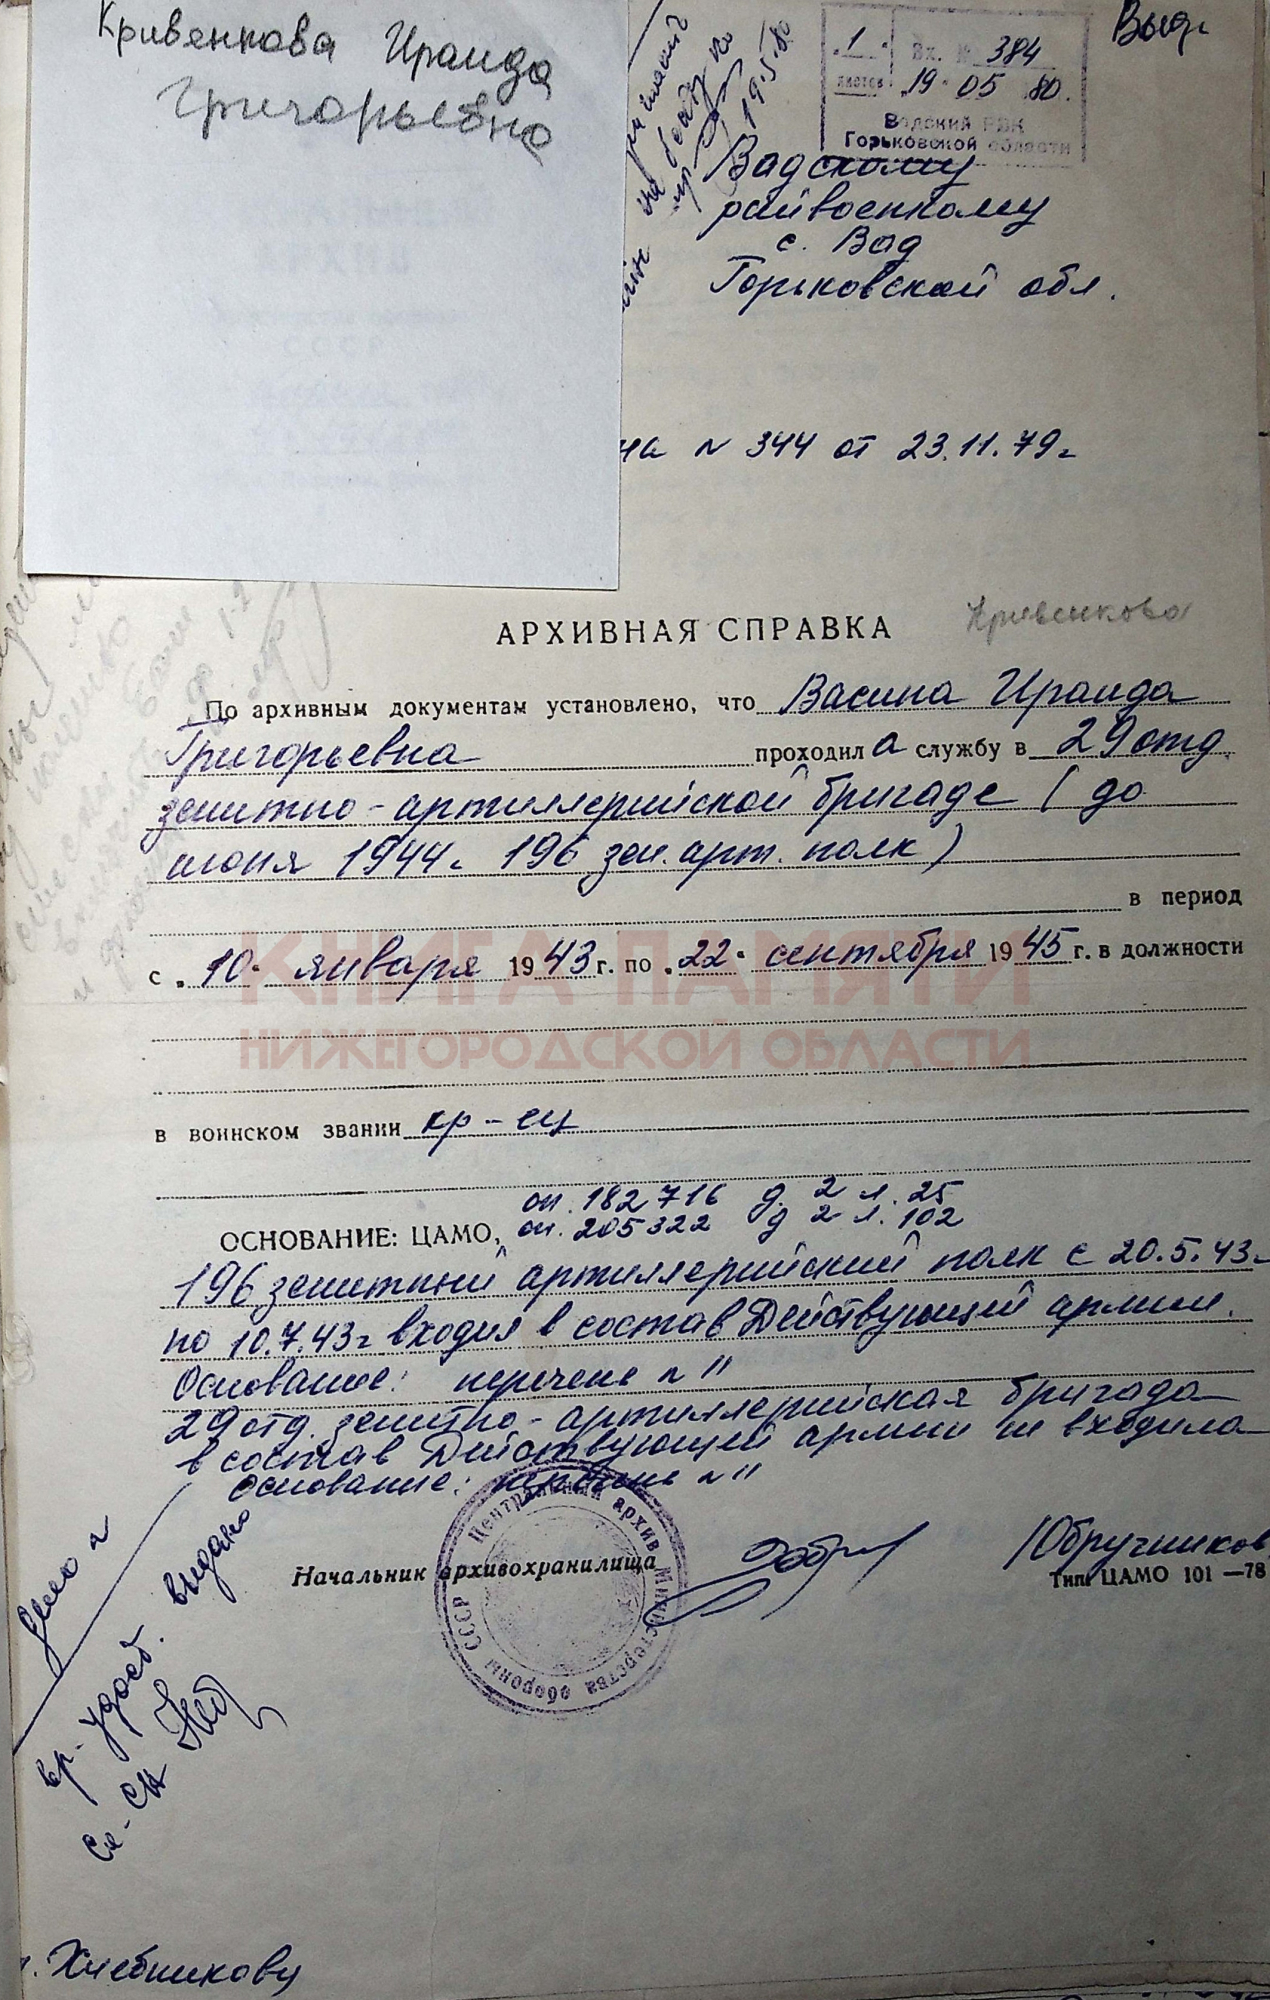 Кривенкова Ираида
Григорьевна
Выд.
1 Вх. № 384
листов 19 05 80.
Вадский РВК
Горьковской области
на беседу
19.5.80
Вадскому
райвоенкому
с. Вад
Горьковской обл.
на № 344 от 23.11.79г
АРХИВНАЯ СПРАВКА Кривенкова
По архивным документам установлено, что Васина Ираида
Григорьевна проходил а службу в 29 отд
зенитно-артиллерийской бригаде (до
июня 1944г 196 зен. арт. полк)
в период
с „10“ января 1943 г. по „22“ сентября 1945 г. в должности
КНИГА ПАМЯТИ
НИЖЕГОРОДСКОЙ ОБЛАСТИ
в воинском звании кр-ец
оп. 182716 д. 2 л. 25
ОСНОВАНИЕ: ЦАМО, оп. 205322 д 2 л. 102
196 зенитный артиллерийский полк с 20.5.43г
по 10.7.43г входил в состав Действующей армии.
Основание: перечень № 11
29 отд. зенитно-артиллерийская бригада
в состав Действующей армии не входила
Основание: перечень № 11
Центральный архив Министерства обороны СССР
Начальник архивохранилища /Обручников
Тип. ЦАМО 101—78
вр. удост. выдано
Хлебникову